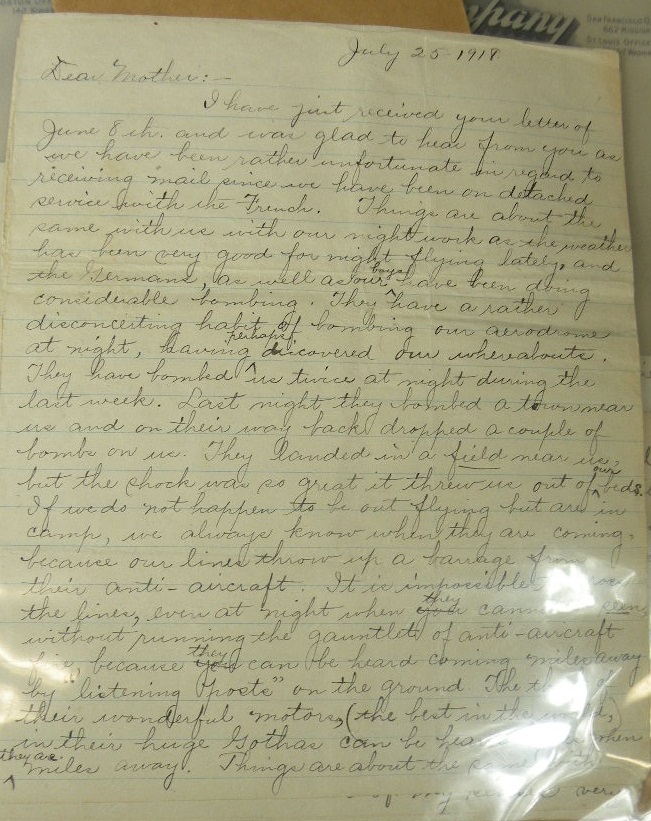 mpany
SAN FRANCISCO O
ST. LOUIS OFFICE
July 25 1918
Dear Mother:-
I have just received your letter of
June 8th. and was glad to hear from you as
we have been rather unfortunate in regard to
receiving mail since we have been on detached
service with the French. Things are about the
same with us with our night work as the weather
has been very good for night flying lately, and
the Germans, as well as our boys have been doing
considerable bombing. They have a rather
disconcerting habit of bombing our aerodrome
at night, having perhaps discovered our whereabouts.
They have bombed us twice at night during the
last week. Last night they bombed a town near
us and on their way back dropped a couple of
bombs on us. They landed in a field near us,
but the shock was so great it threw us out of our beds.
If we do not happen to be out flying but are in
camp, we always know when they are coming,
because our lines throw up a barrage from
their anti-aircraft. It is impossible
the lines, even at night when they seen
without running the gauntlet of anti-aircraft
because they can be heard coming miles away
by listening "posts" on the ground. The
their wonderful motors, (the best in the
in their huge Gothas can be when
they are miles away. Things are about the
of my very